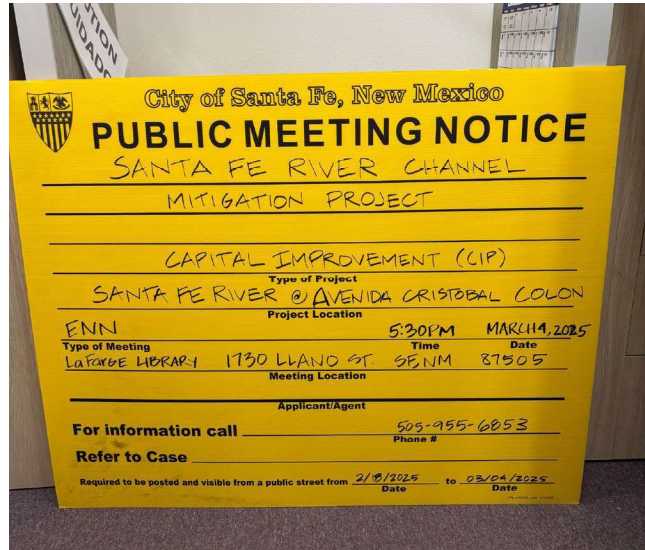 UTION
UIDADO
City of Santa Fe, New Mexico
PUBLIC MEETING NOTICE
SANTA FE RIVER CHANNEL
MITIGATION PROJECT
CAPITAL IMPROVEMENT (CIP)
Type of Project
SANTA FE RIVER @ AVENIDA CRISTOBAL COLON
Project Location
ENN 5:30PM MARCH 4, 2025
Type of Meeting Time Date
LaFarge LIBRARY 1730 LLANO ST. SF, NM 87505
Meeting Location
Applicant/Agent
For information call 505-955-6853
Phone #
Refer to Case
Required to be posted and visible from a public street from 2/18/2025 to 03/04/2025
Date Date